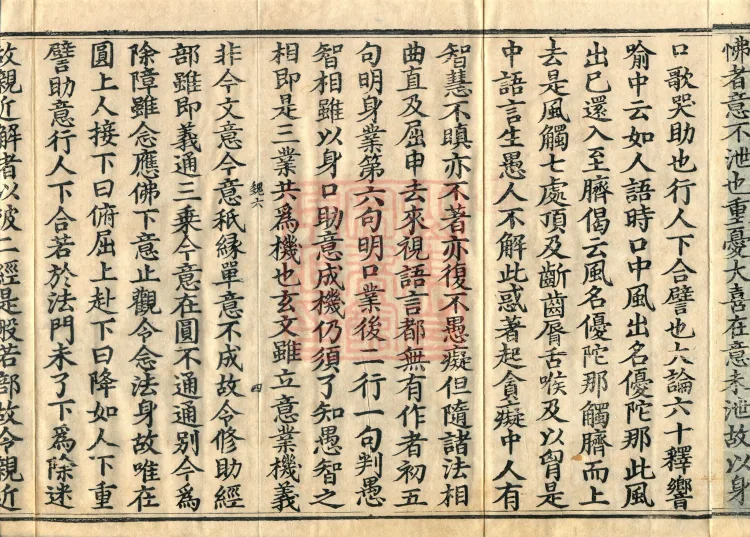 怫者意不泄也重憂大喜在意未泄故以身
口歌哭助也行人下合譬也大論六十釋響
喻中云如人語時口中風出名優陀那此風
出已還入至臍偈云風名優陀那觸臍而上
去是風觸七處頂及齗齒脣舌喉及以胷是
中語言生愚人不解此惑著起貪癡中人有
智慧不瞋亦不著亦復不愚癡但隨諸法相
曲直及屈申去來視語言都無有作者初五
句明身業第六句明口業後二行一句判愚
智相雖以身口助意成機仍須了知愚智之
相即是三業共爲機也玄文雖立意業機義
魏六
四
非今文意今意秖緣單意不成故令修助經
部雖即義通三乘今意在圓不通通別今爲
除障雖念應佛下意止觀令念法身故唯在
圓上人接下曰俯屈上赴下曰降如人下重
譬助意行人下合若於法門未了下爲除迷
故親近解者以彼二經是般若部故令親近